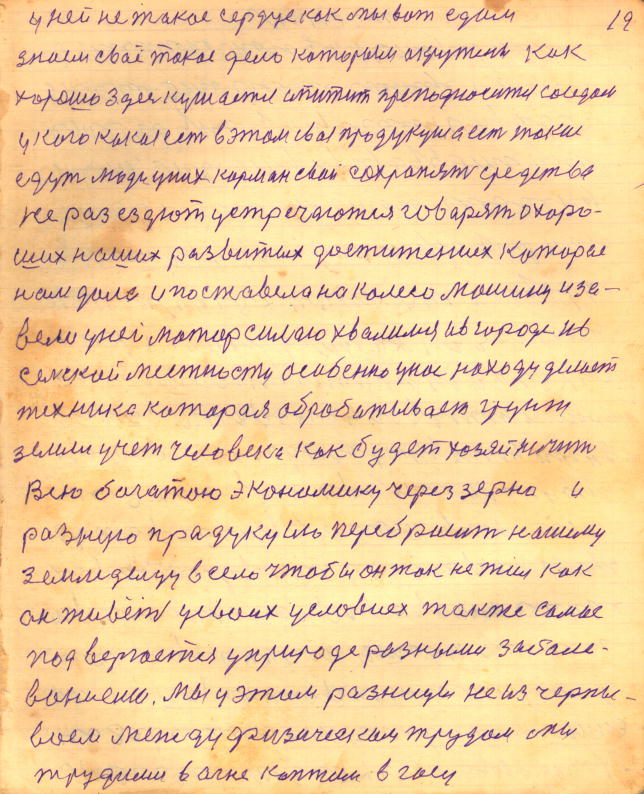 19
у ней не такое сердце как мы вот едим
знаем своё такое дело которым окружены как
хорошо здея кушаетя и питит преподносится соседом
у кого какая ест в этом своя продукуша ест такие
едут люди у них карман свой сохранят средства
не раз ездют устречаются говарят о хоро-
ших наших развитих достиженнех которые
нам дала и поставела на колесо машину и за-
вели у ней матор силаю хвалимя и в городе и в
селской местносту особенно у нас находу делает
техника которая обробатывает грунт
земли учет человека как будет хозяйничит
Всю богатою экономику через зерно и
разную прадукуыю перебрасит нашему
земледелцу в село чтобы он так не жил как
он живёт у своих условиех также самые
подвергается у природе разными забале-
ваниеми. Мы у этом разницы не из черпы-
ваем между физическим трудом мы
трудими в огне коптим в газу